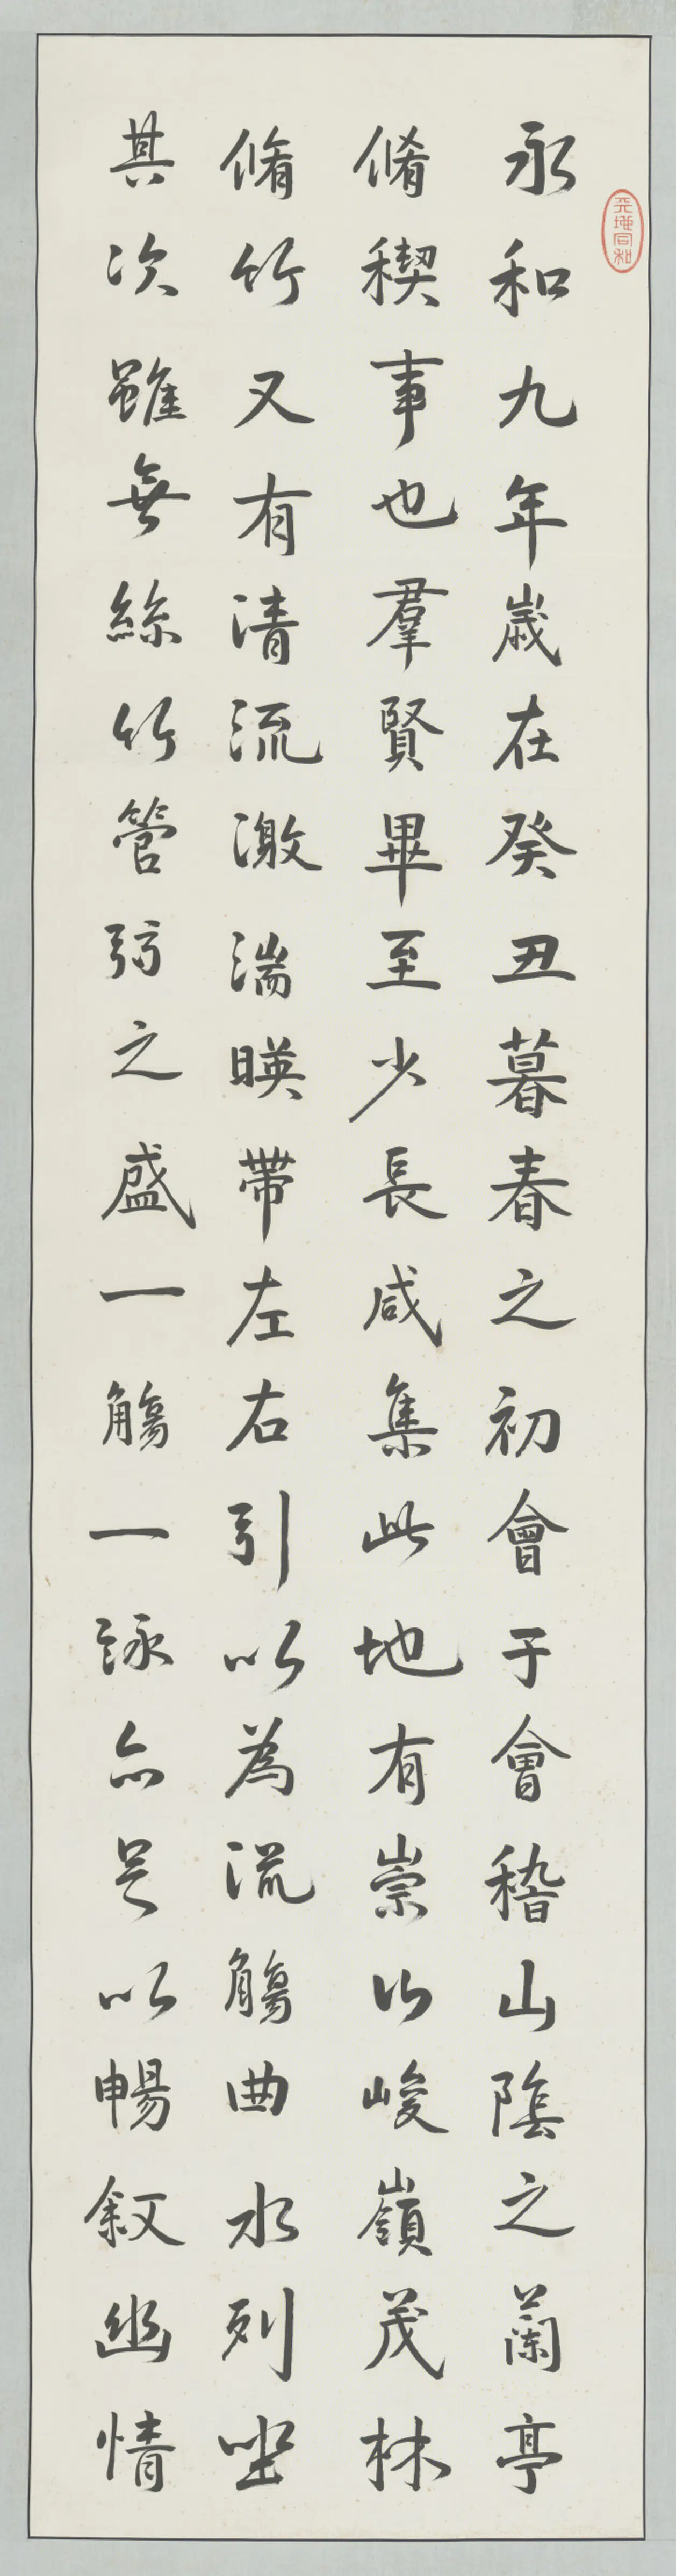 天地同和
永和九年歲在癸丑暮春之初會于會稽山陰之蘭亭
脩稧事也羣賢畢至少長咸集此地有崇山峻嶺茂林
脩竹又有清流激湍暎帶左右引以為流觴曲水列坐
其次雖無絲竹管弦之盛一觴一詠亦足以暢敘幽情